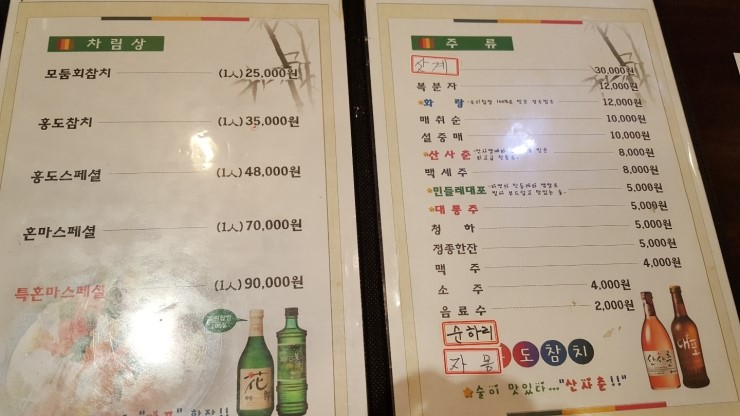 차림상
모둠회참치 (1人) 25,000원
홍도참치 (1人) 35,000원
홍도스페셜 (1人) 48,000원
혼마스페셜 (1人) 70,000원
특혼마스페셜 (1人) 90,000원
花
한잔!!
주 류
산 계 30,000원
복 분 자 12,000원
화 랑 12,000원
매 취 순 10,000원
설 중 매 10,000원
산 사 춘 8,000원
백 세 주 8,000원
민들레대포 5,000원
대 통 주 5,000원
청 하 5,000원
정종한잔 5,000원
맥 주 4,000원
소 주 4,000원
음 료 수 2,000원
순하리
자 몽 도 참 치
산사춘
대포
술이 맛있다..."산사춘!!"